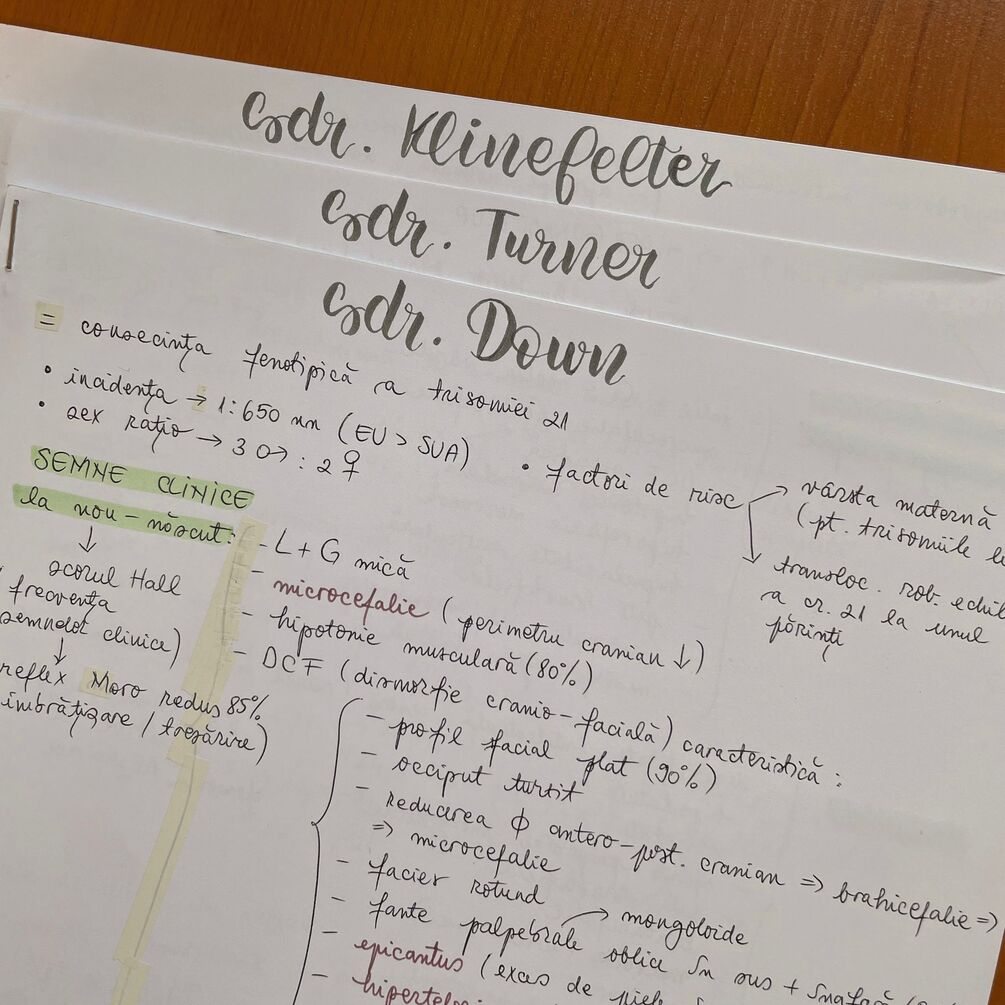 sdr. Klinefelter
sdr. Turner
sdr. Down
= consecința fenotipică a trisomiei 21
• incidența → 1:650 nn (EU > SUA)
• sex ratio → 3♂ : 2♀
• factori de risc → vârsta maternă
(pt. trisomiile
→ transloc. rob.
a cr. 21 la unul
părinți
SEMNE CLINICE
la nou-născut:
↓
scorul Hall
frecvența
semnelor clinice)
↓
reflex Moro redus 85%
îmbrățișare / tresărire)
- L + G mică
- microcefalie (perimetru cranian ↓)
- hipotonie musculară (80%)
- DCF (dismorfie cranio-facială) caracteristică:
- profil facial plat (90%)
- occiput turtit
- reducerea ϕ antero-post. cranian => brahicefalie =>
=> microcefalie
- facies rotund
- fante palpebrale oblice în sus +
→ mongoloide
- epicantus (exces de piele